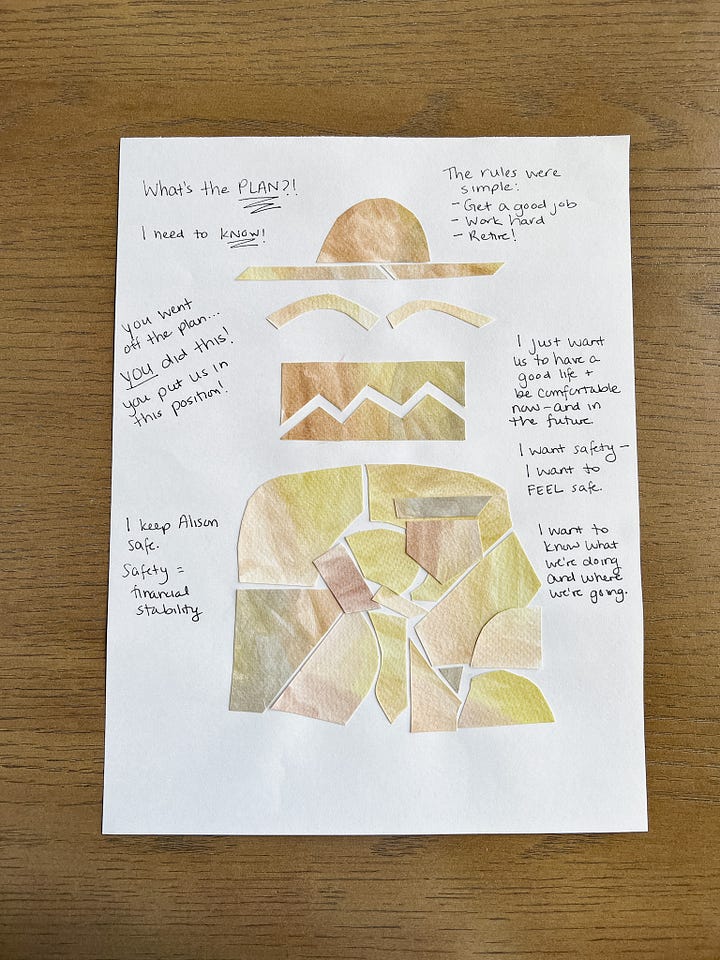 What's the PLAN?!
I need to KNOW!
The rules were
simple:
- Get a good job
- Work hard
- Retire!
you went
off the plan...
you did this!
you put us in
this position!
I just want
us to have a
good life +
be comfortable
now - and in
the future
I want safety -
I want to
FEEL safe.
I keep Alison
safe.
Safety =
financial
stability
I want to
know what
we're doing
and where
we're going.